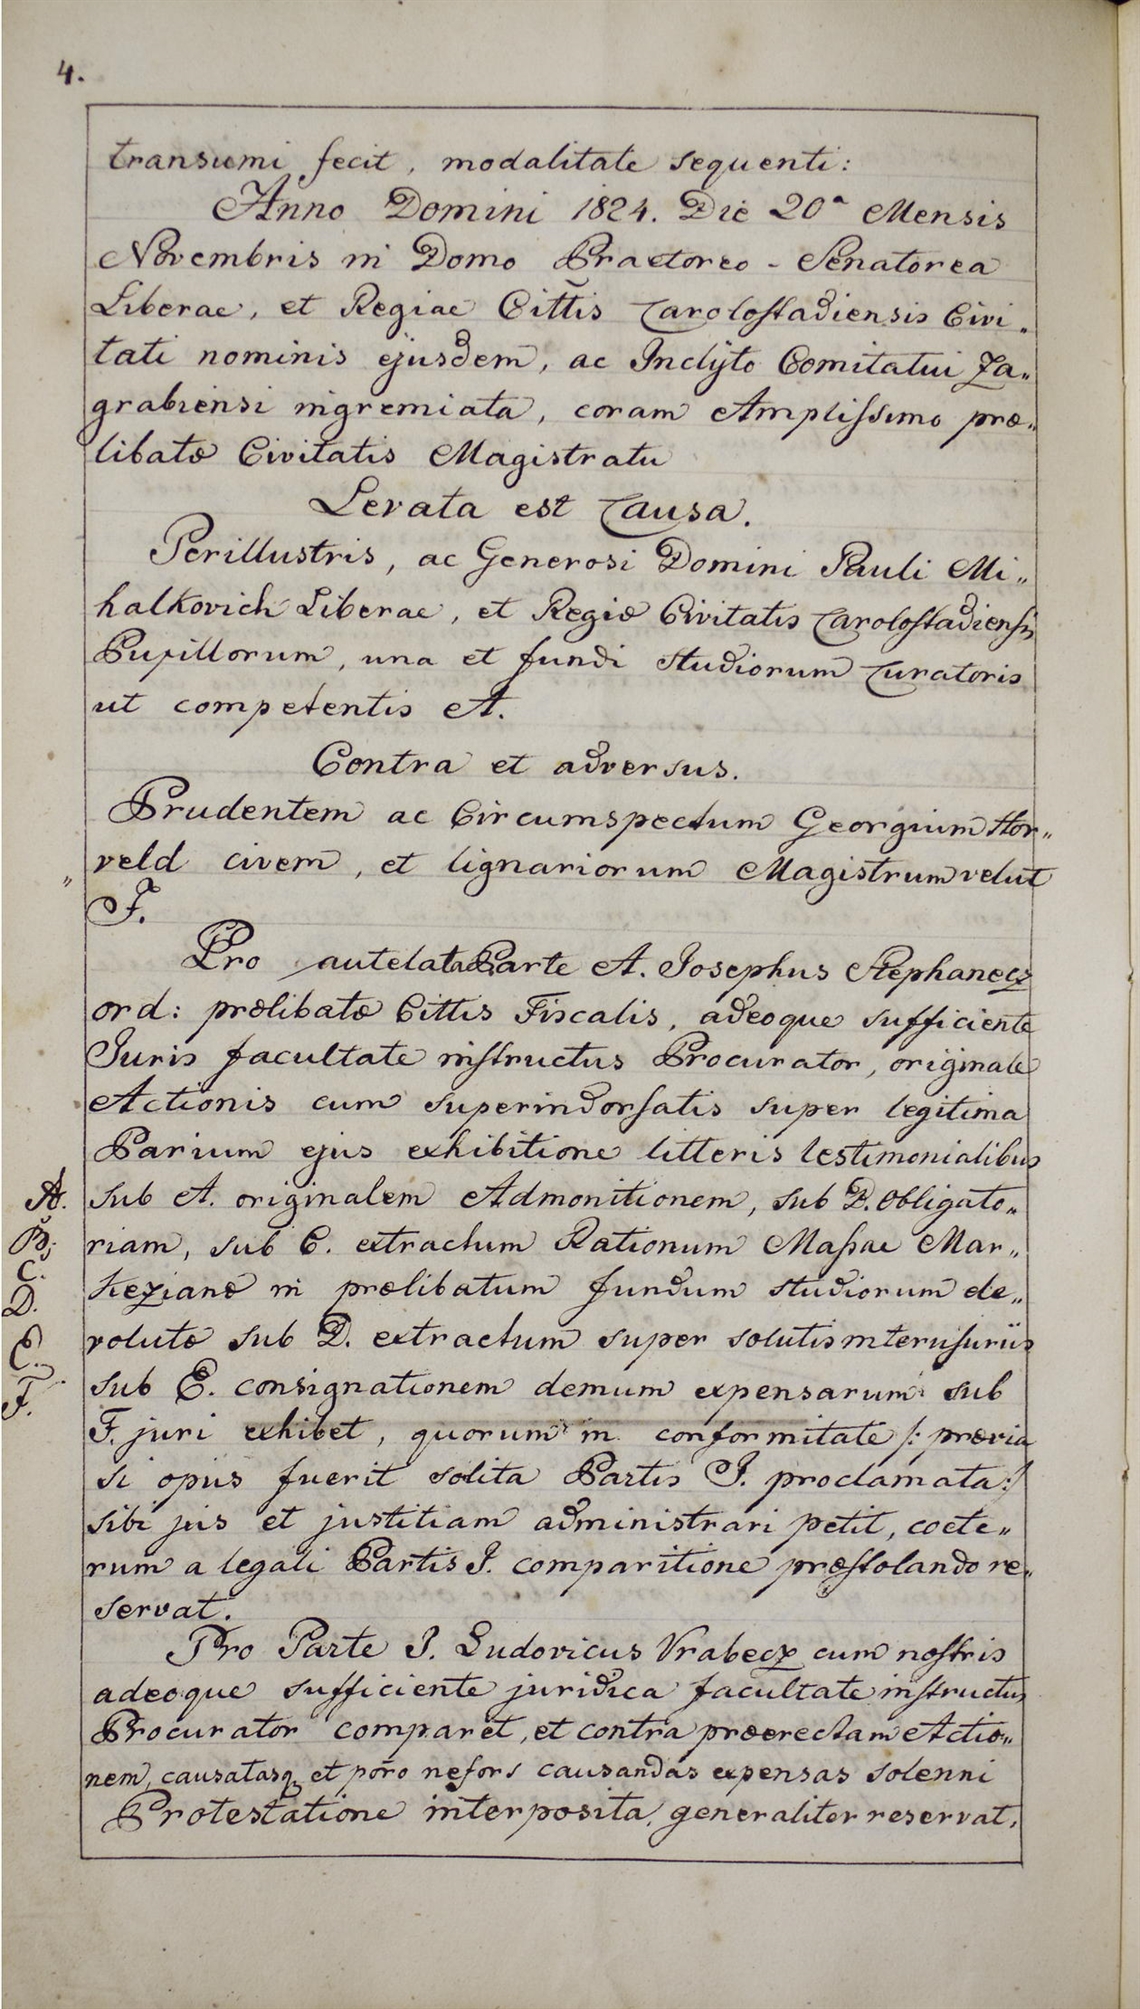 4.
transumi fecit, modalitate sequenti:
Anno Domini 1824. Die 20a Mensis
Novembris in Domo Praetoreo - Senatorea
Liberae, et Regiae Cittis Carolostadiensis Civi„
tati nominis ejusdem, ac Inclÿto Comitatui Za„
grabiensi ingremiata, coram Amplissimo præ„
libatæ Civitatis Magistratu
Levata est Causa.
Perillustris, ac Generosi Domini Pauli Mi„
halkovich Liberae, et Regiæ Civitatis Carolostadiensis
Pupillorum, una et fundi studiorum Curatoris
ut competentis A.
Contra et adversus.
Prudentem ac Circumspectum Georgium Hor„
„ veld civem, et lignariorum Magistrum velut
I.
Pro autelata Parte A. Josephus Stephanecz
ord: prælibatæ Cittis Fiscalis, adeoque sufficiente
Juris facultate instructus Procurator, originale
Actionis cum superindorsatis super legitima
Parium ejus exhibitione litteris testimonialibus
A. sub A. originalem Admonitionem, sub B. Obligato„
B. riam, sub C. extractum Rationum Massae Mar„
C. kezianæ in prælibatum fundum studiorum de„
D. volutæ sub D. extractum super solutis interusuriis
E. sub E. consignationem demum expensarum sub
F. F. juri exhibet, quorum in conformitate /: prævia
si opus fuerit solita Partis I. proclamata :/
sibi jus et justitiam administrari petit, coete„
rum a legali Partis I. comparitione præstolando re„
servat.
Pro Parte I. Ludovicus Vrabecz cum nostris
adeoque sufficiente juridica facultate instructus
Procurator comparet, et contra præerectam Actio„
nem, causatasq et porro nefors causandas expensas solenni
Protestatione interposita, generaliter reservat.